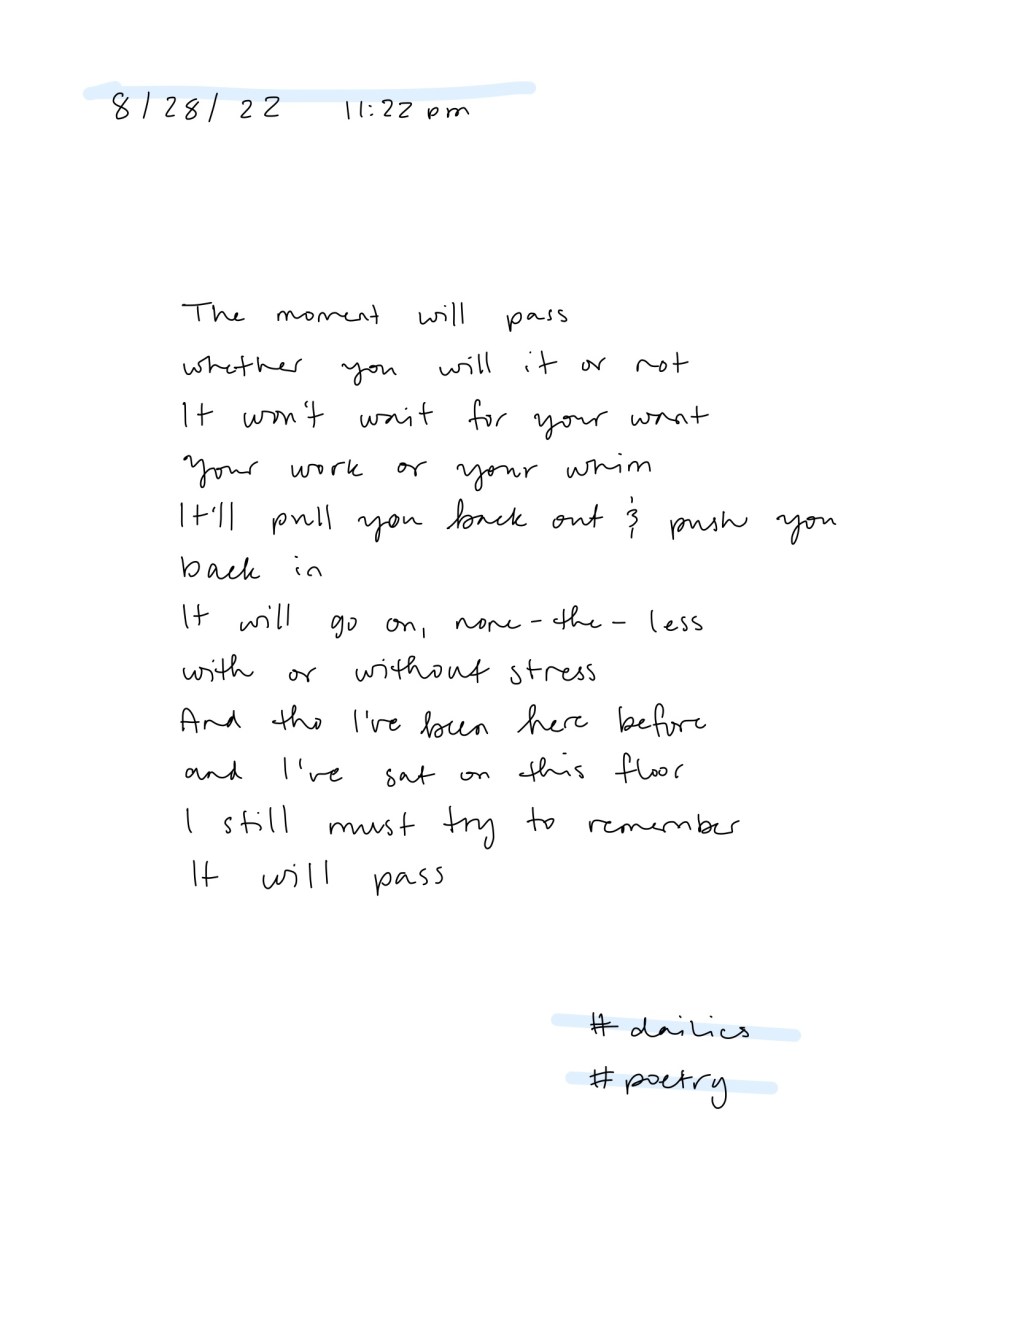 8/28/22 11:22 pm
The moment will pass
whether you will it or not
It won't wait for your want
Your work or your whim
It'll pull you back out & push you
back in
It will go on, none-the-less
with or without stress
And tho I've been here before
and I've sat on this floor
I still must try to remember
It will pass
#dailies
#poetry